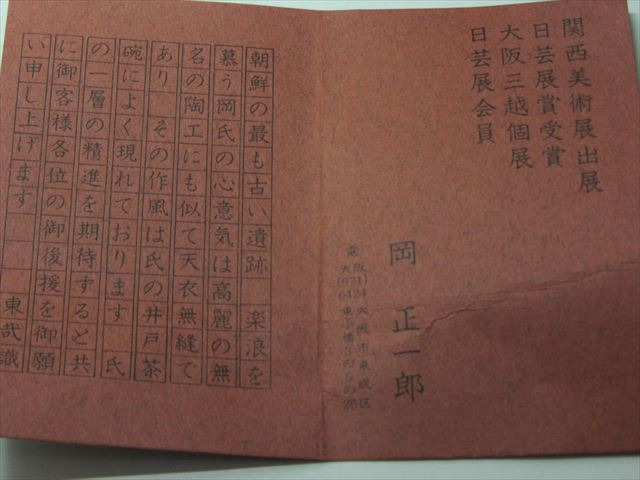 関西美術展出展
日芸展賞受賞
大阪三越個展
日芸展会員
岡 正一郎
大阪市東成区
電
大阪
(971)
6424
朝鮮の最も古い遺跡 楽浪を
慕う岡氏の心意気は高麗の無
名の陶工にも似て天衣無縫で
あり その作風は氏の井戸茶
碗によく現れております 氏
の一層の精進を期待すると共
に御客様各位の御後援を御願
い申し上げます 東哉識